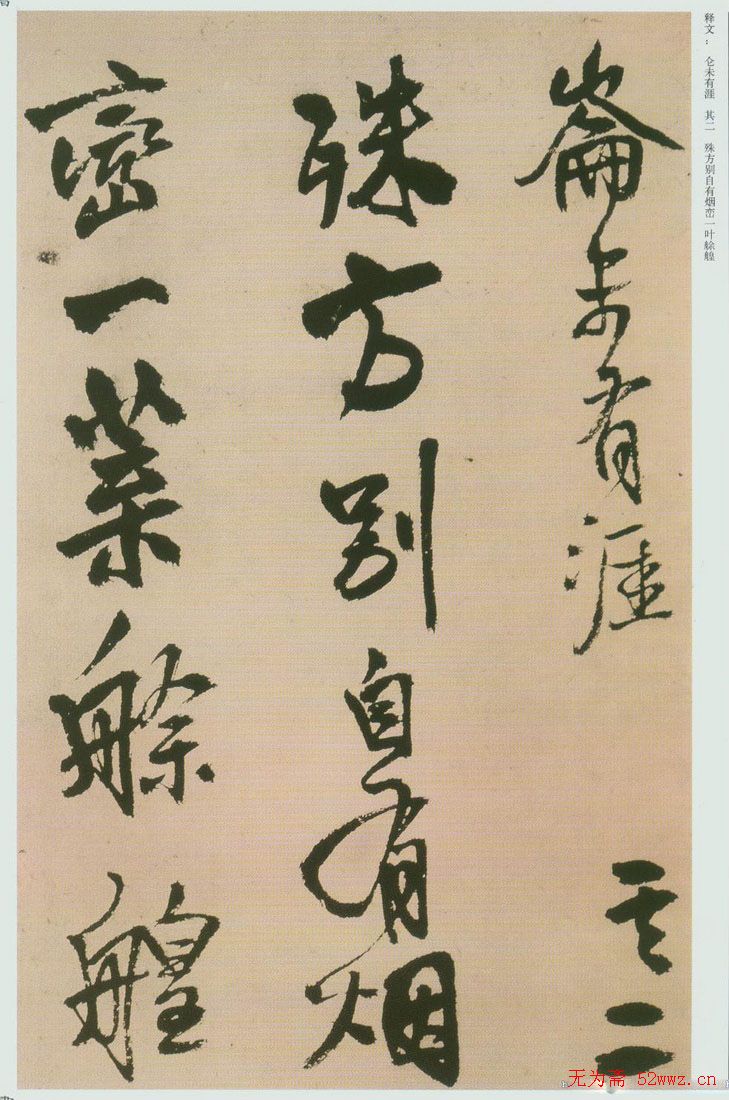 释文： 仑未有涯 其二 殊方别自有烟峦一叶艅艎
崙未有涯 其二
殊方别自有烟
峦一葉艅艎
无为斋 52wwz.cn